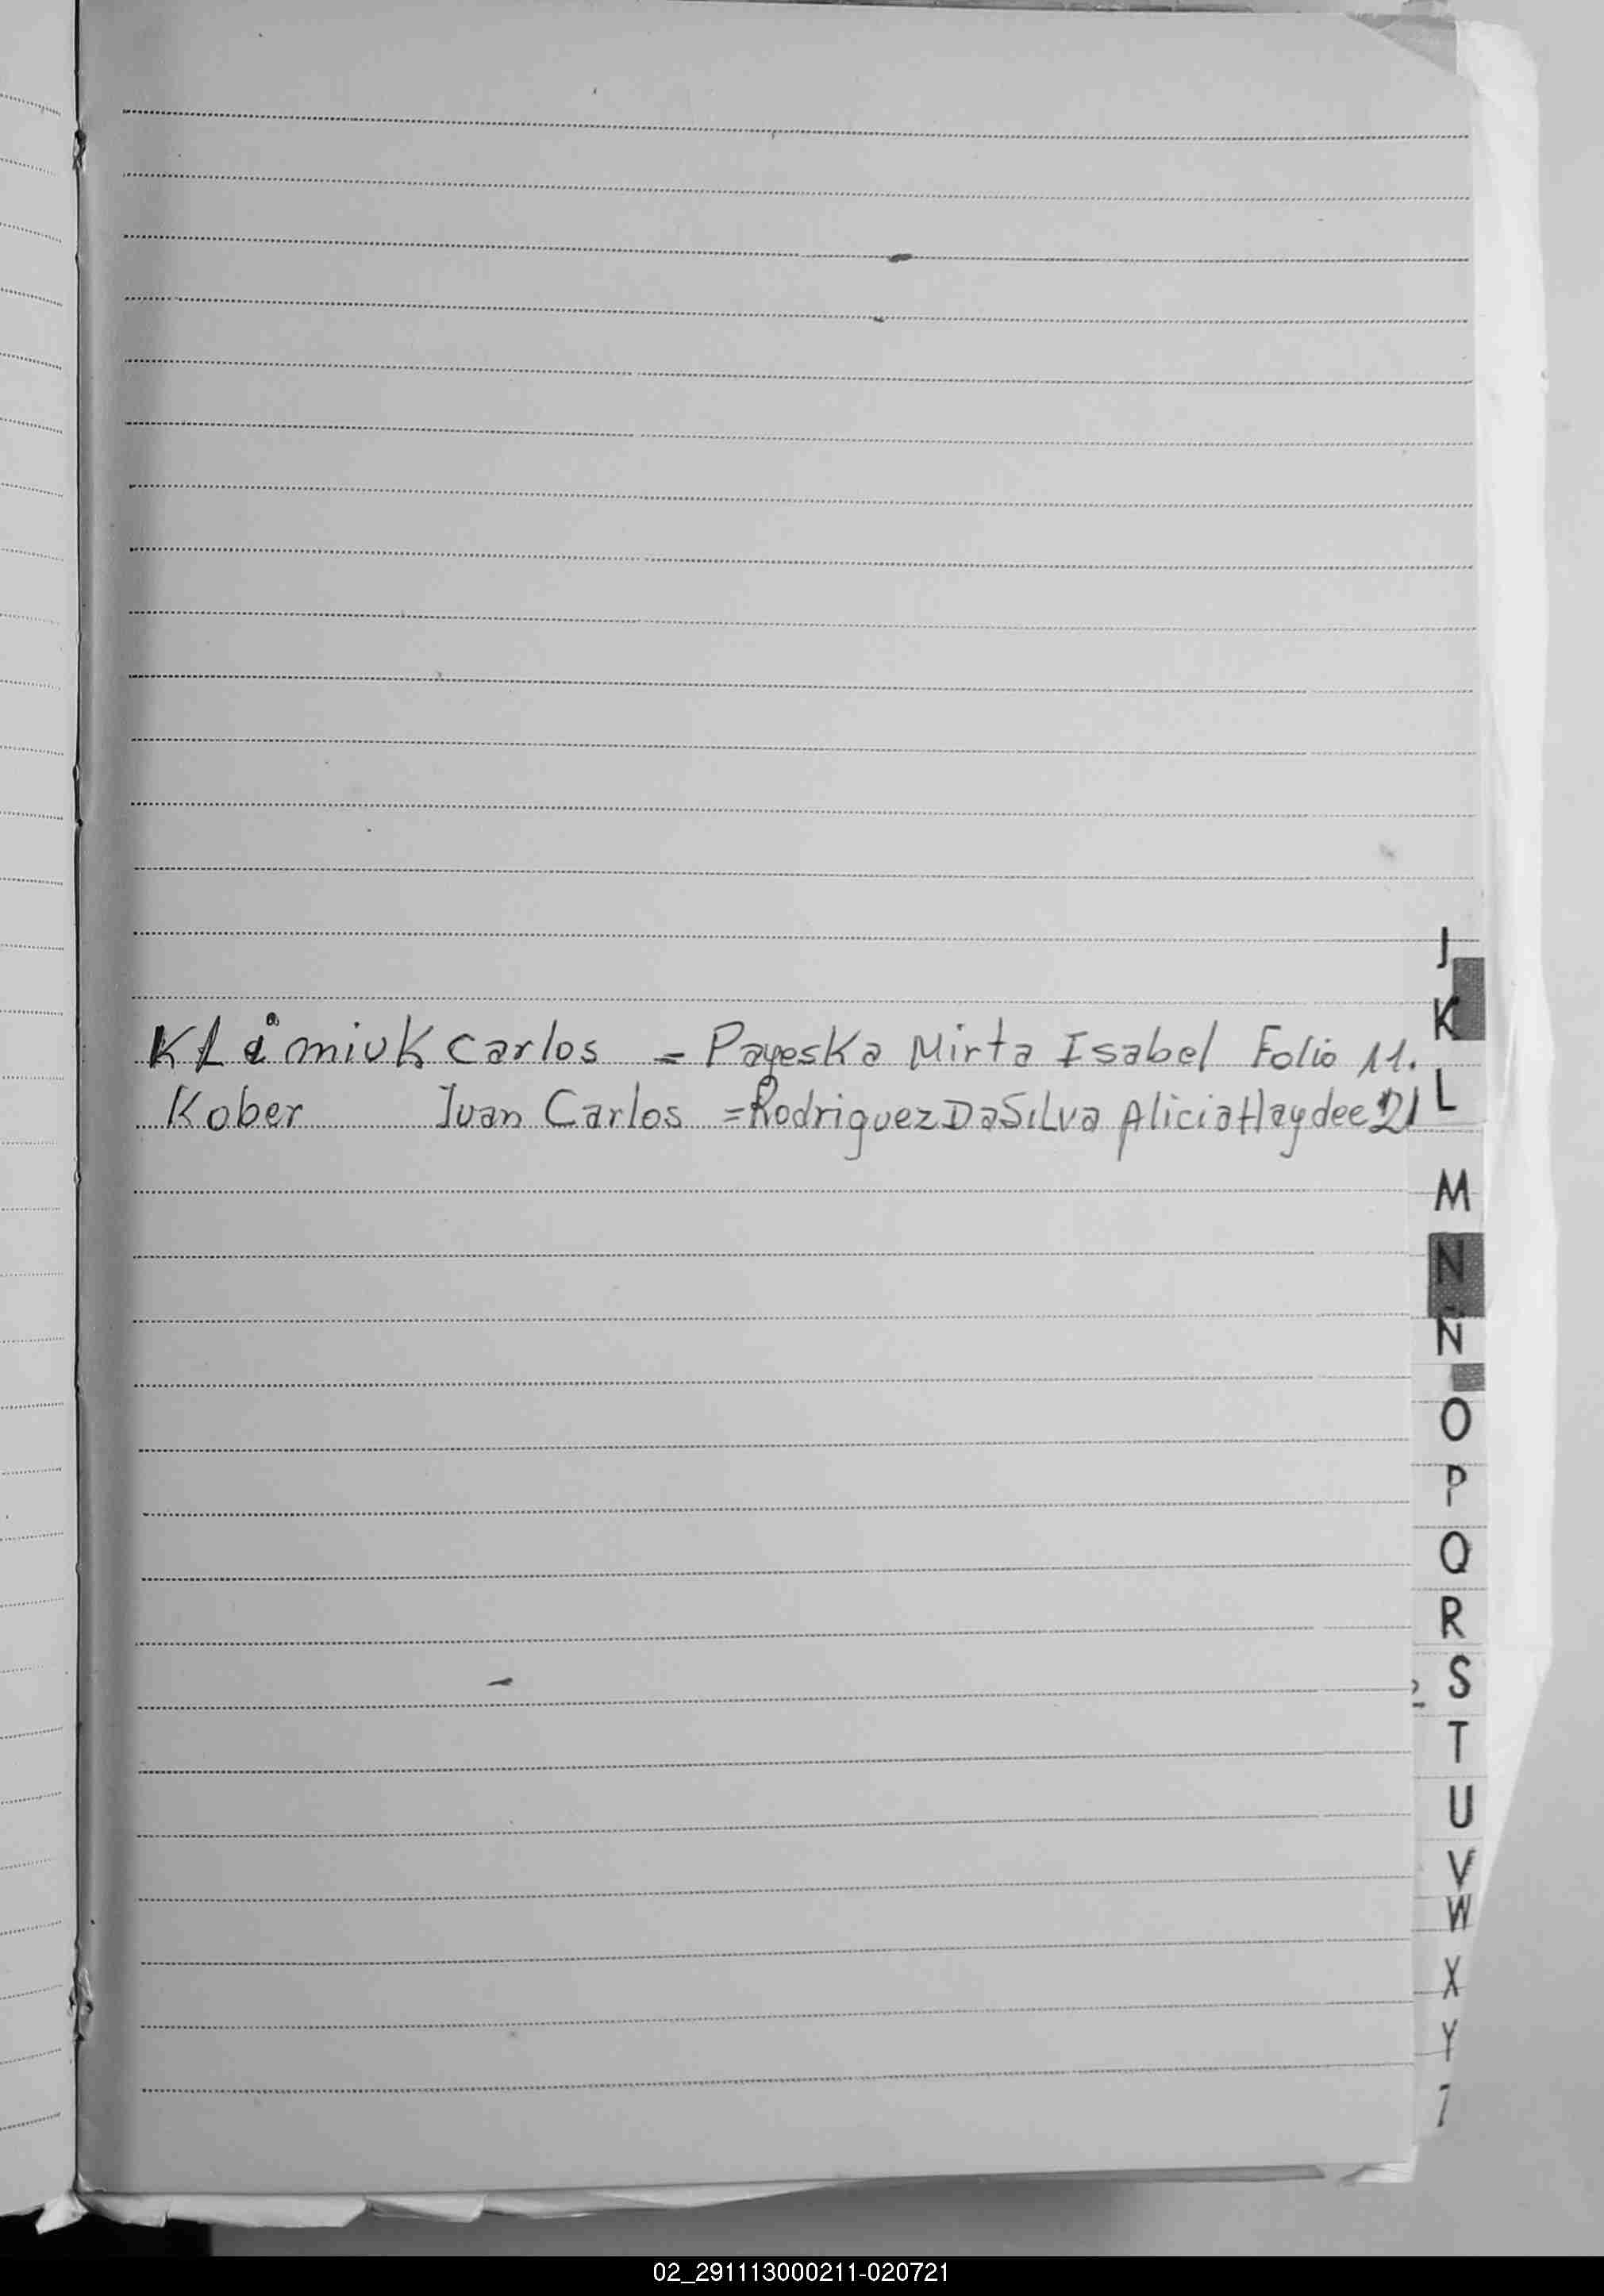 Klimiuk Carlos = Payeska Mirta Isabel Folio 11.
Kober Juan Carlos = Rodriguez DaSilva Alicia Haydee 21
J
K
L
M
N
Ñ
O
P
Q
R
S
T
U
V
W
X
Y
02_291113000211-020721